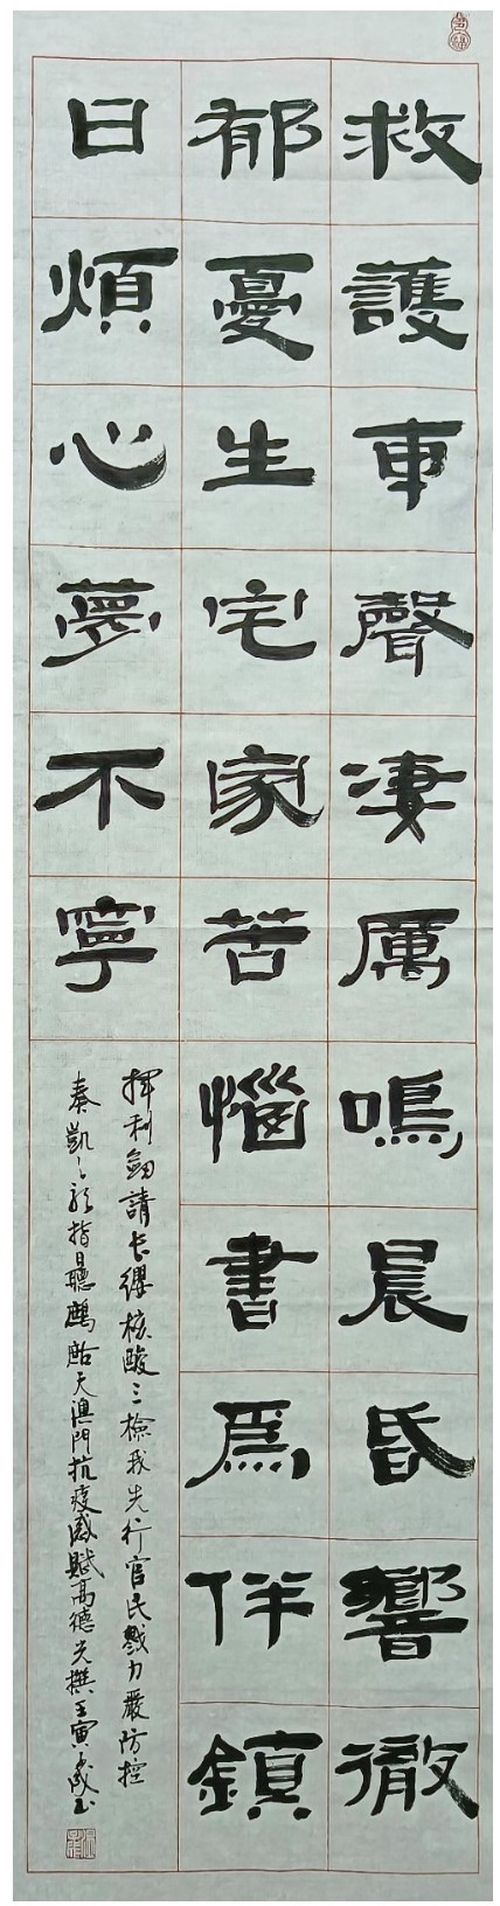 救護車聲凄厲鳴晨昏響徹
郁憂生宅家苦惱書爲伴鎮
日煩心夢不寧
揮利劍請長纓核酸三檢我先行官民戮力嚴防控
奏凱之歌指日聽鷓鴣天澳門抗疫感賦高德光撰壬寅